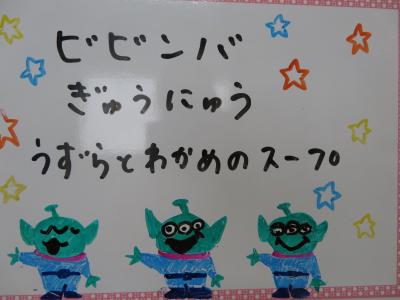 ビビンバ
ぎゅうにゅう
うずらとわかめのスープ